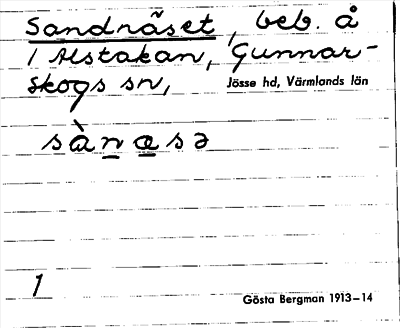 Sandnäset, beb. å
1 Alstakan, Gunnar-
skogs sn, Jösse hd, Värmlands län
sànæsə
1
Gösta Bergman 1913–14